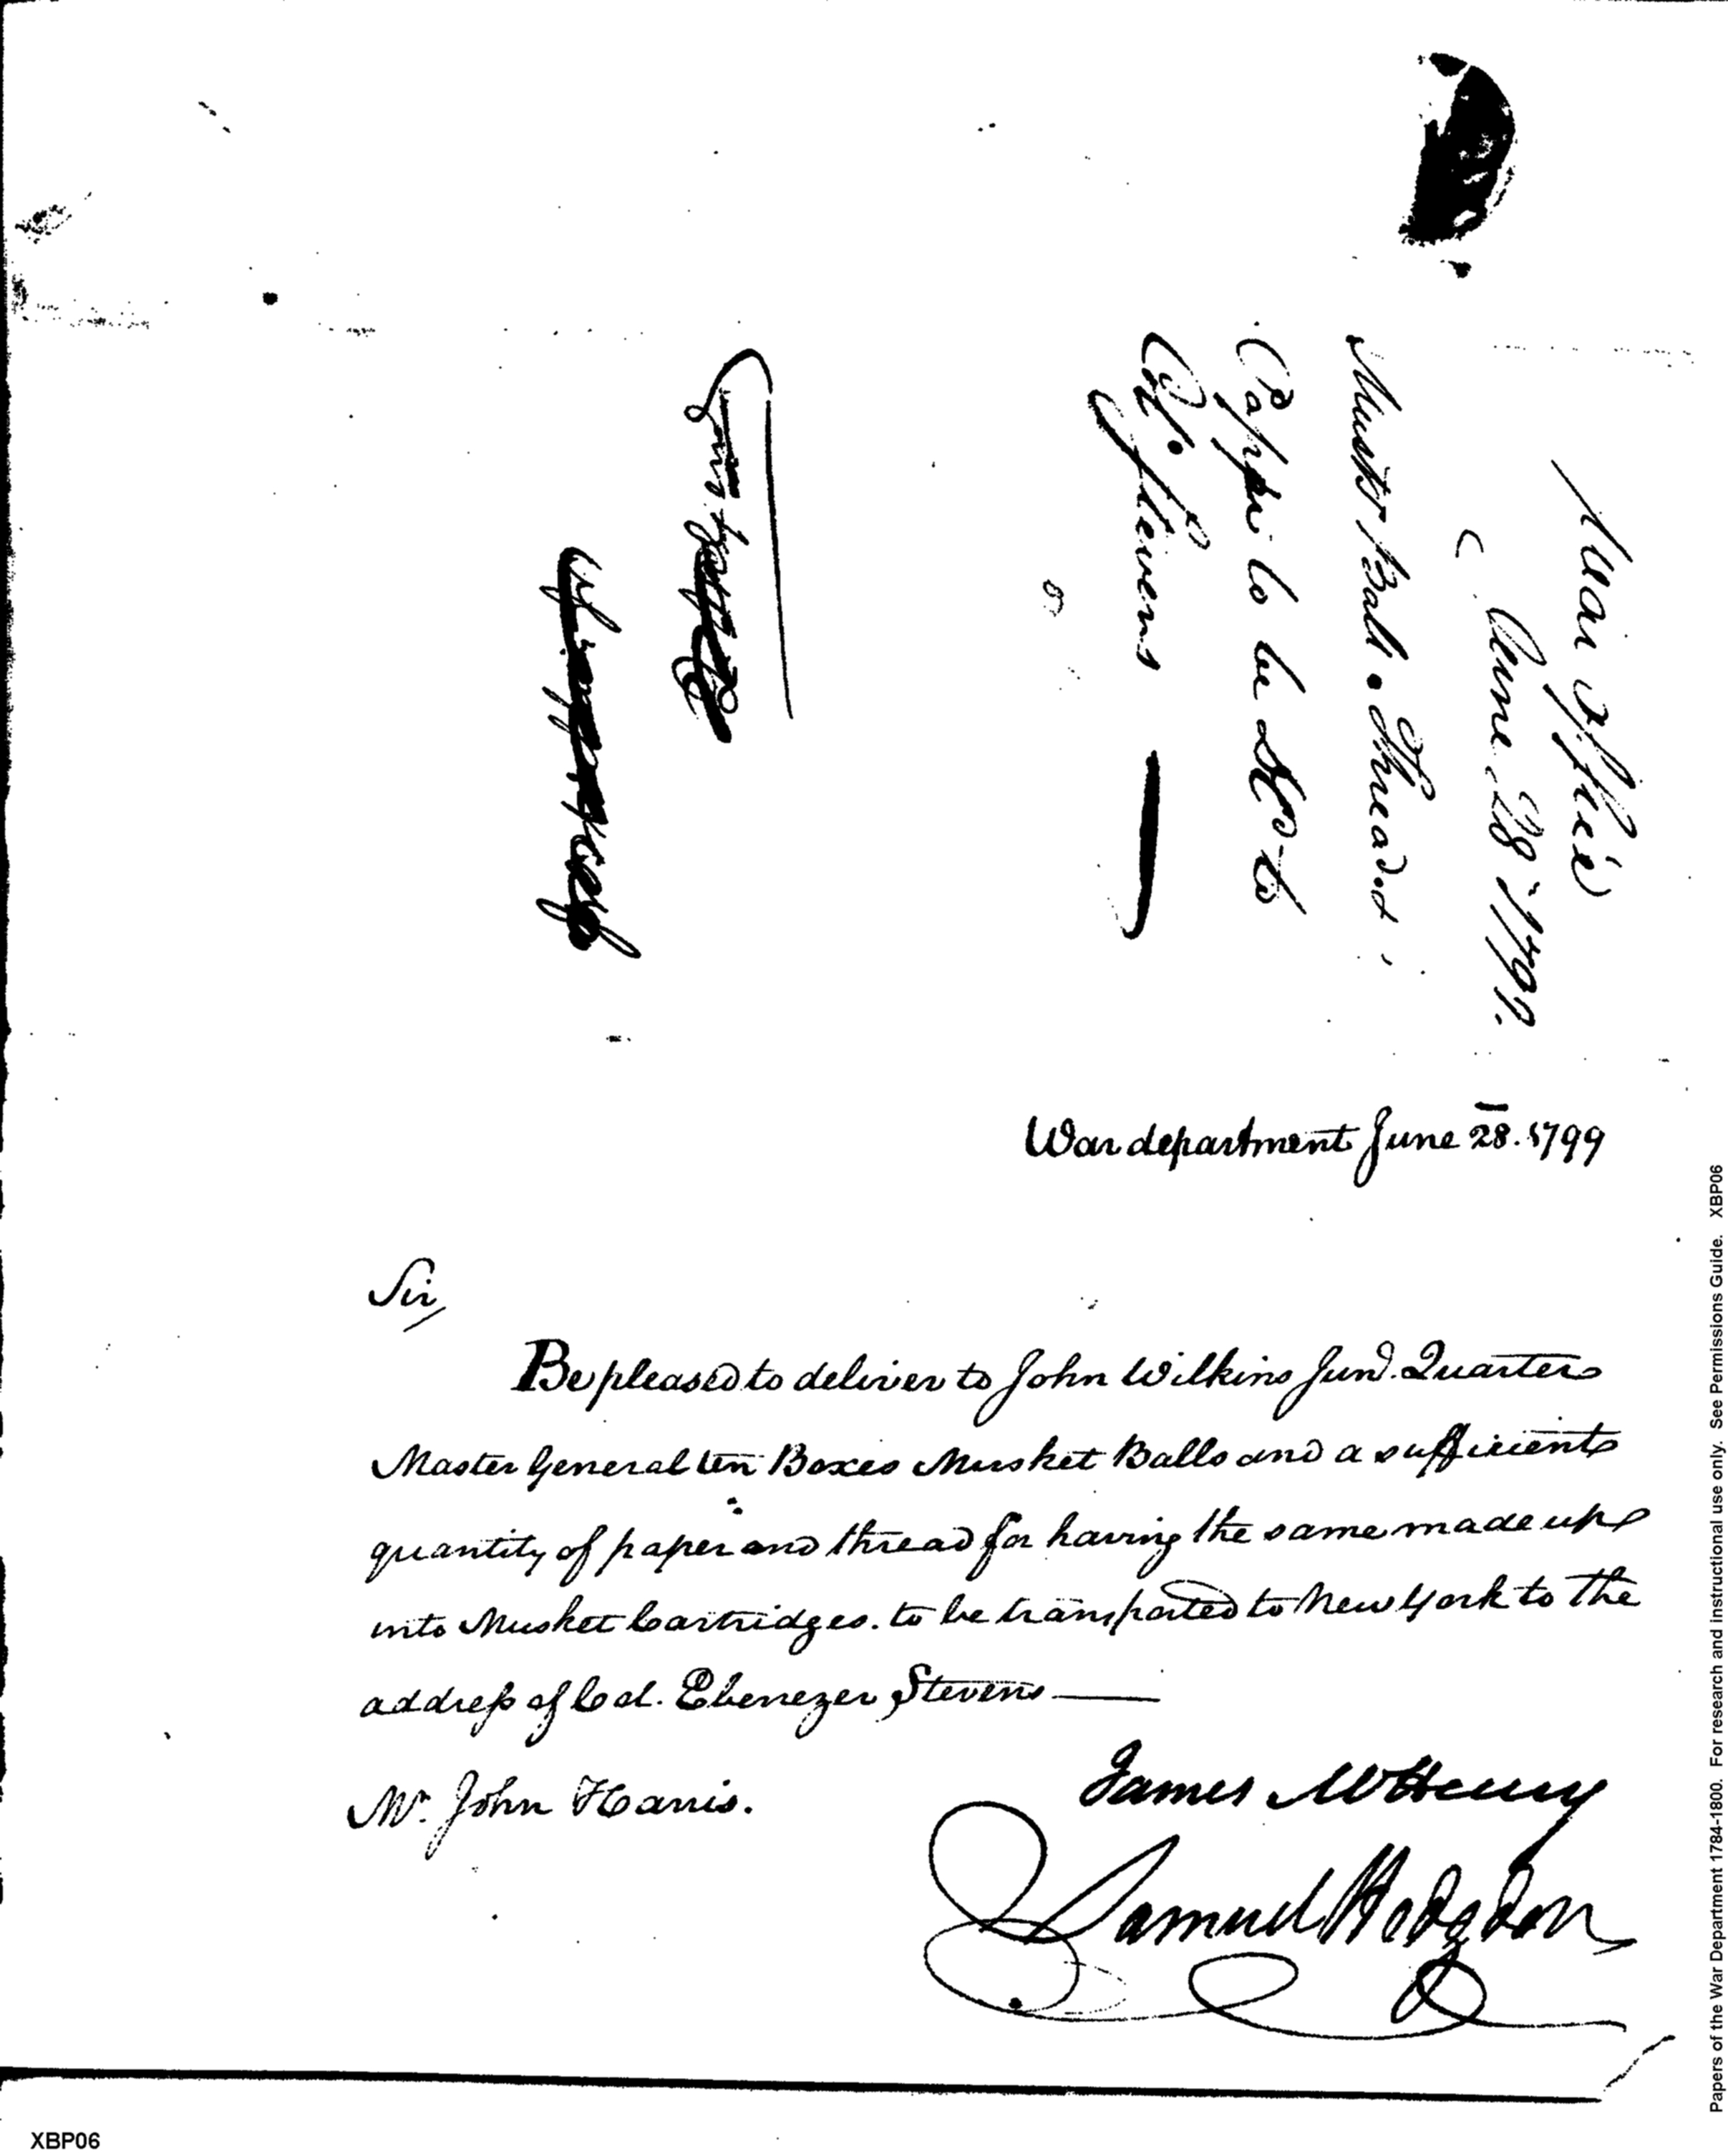 War Office
June 28 1799.
Muskt Balls. Thread &
Paper to be del'd to
Col. Stevens
War department June 28. 1799
Sir,
Be pleased to deliver to John Wilkins Junr. Quarter
Master General ten Boxes Musket Balls and a sufficient
quantity of paper and thread for having the same made up
into Musket Cartridges. to be transported to New York to the
address of Col. Ebenezer Stevens
James McHenry
Mr. John Harris.
Samuel Hodgdon
Papers of the War Department 1784-1800. For research and instructional use only. See Permissions Guide. XBP06
XBP06